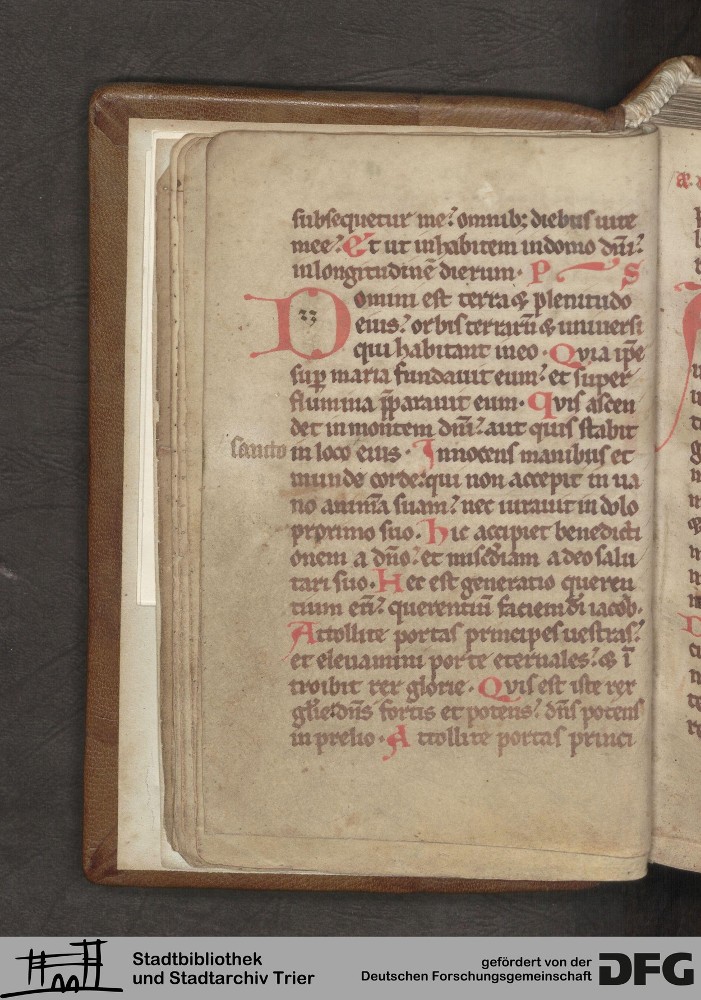 subsequetur me: omnib; diebus uite
mee: Et ut inhabitem in domo dñi:
in longitudinē dierum. P S
Domini est terra & plenitudo
23
eius: orbis terrarū & uniuersi
qui habitant in eo. Quia ip̄e
sup̄ maria fundauit eum: et super
flumina p̄parauit eum. Quis ascen
det in montem dñi: aut quis stabit
sancto in loco eius. Innocens manibus et
mundo corde: qui non accepit in ua
no animā suam: nec iurauit in dolo
proximo suo. Hic accipiet benedicti
onem a dño: et misc̄diam a deo salu
tari suo. Hec est generatio queren
tium eū: querentiū faciem di iacob.
Attollite portas principes uestras:
et eleuamini porte eternales: & ī
troibit rex glorie. Quis est iste rex
gl̄ie: dñs fortis et potens: dñs potens
in prelio. Attollite portas princi
Stadtbibliothek
und Stadtarchiv Trier
gefördert von der
Deutschen Forschungsgemeinschaft DFG